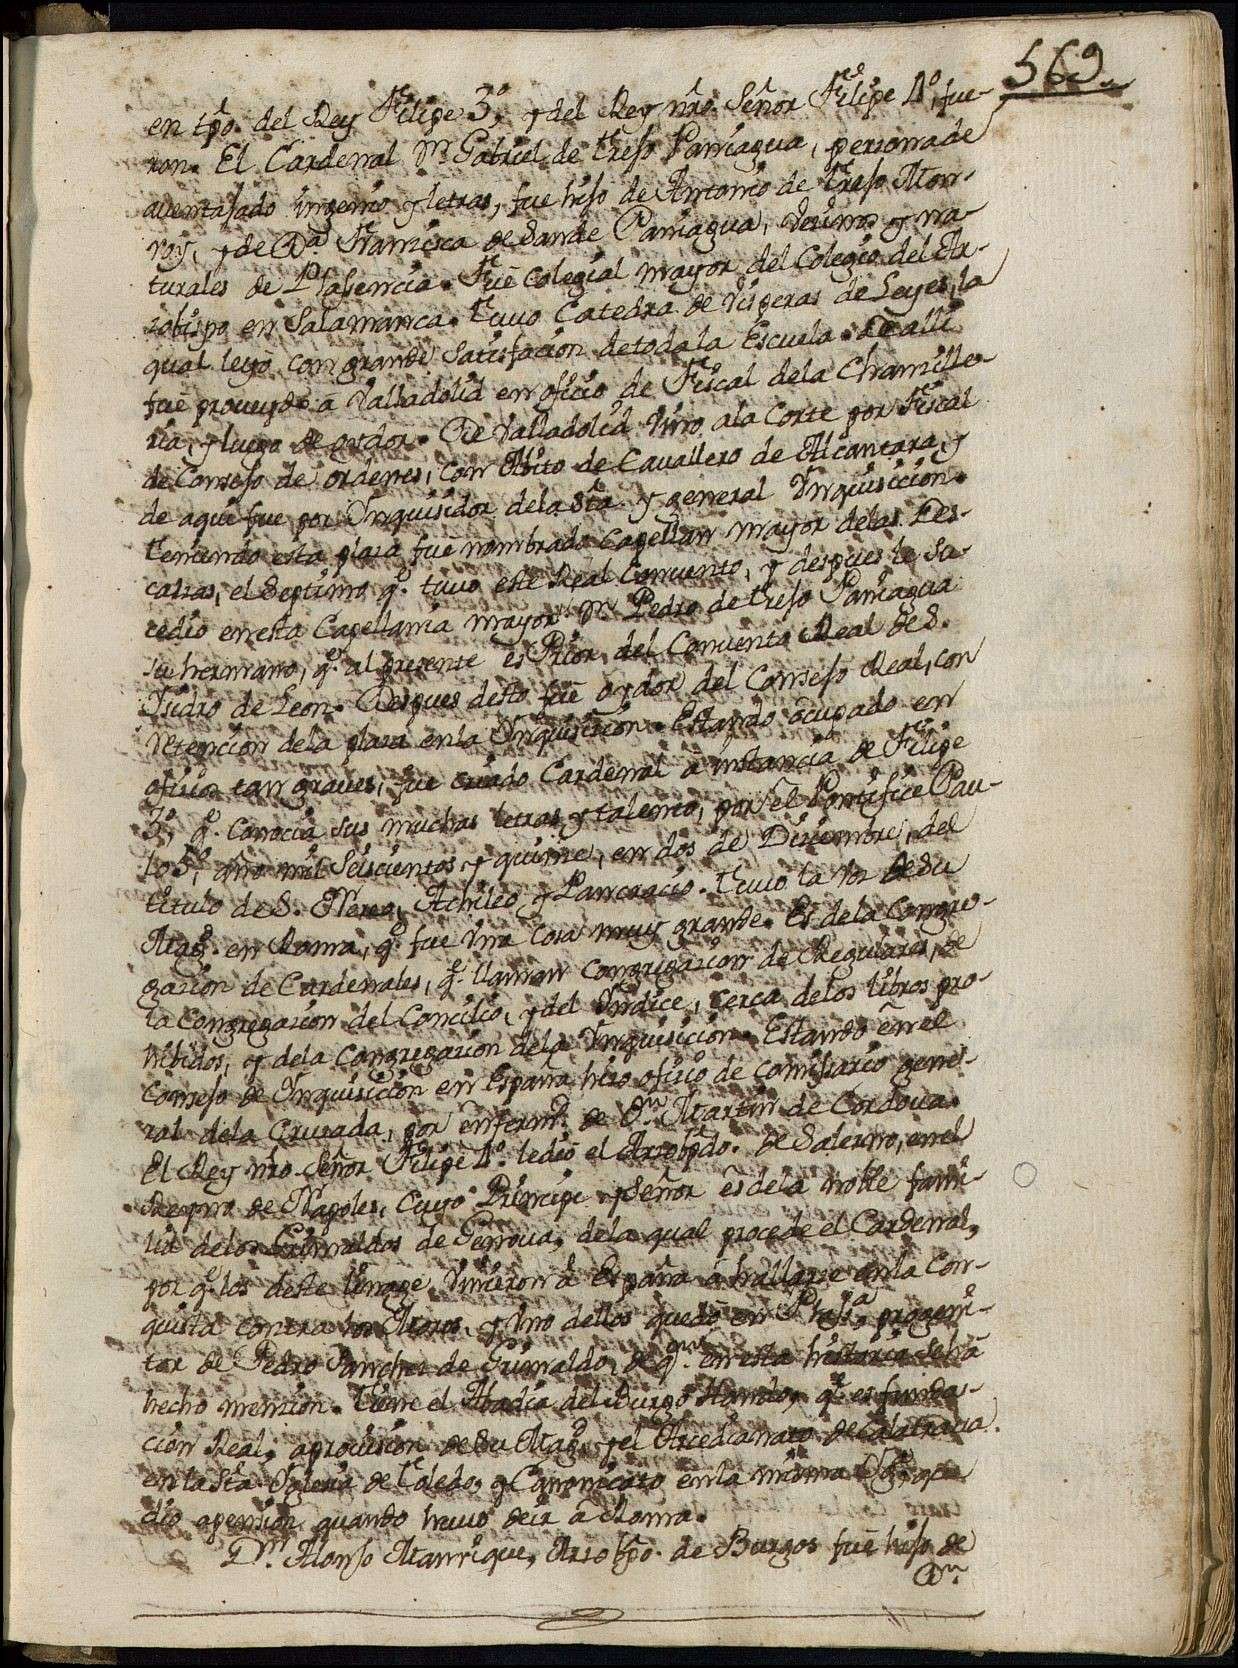 569.
en tpo. del Rey Felipe 3º, y del Rey nro. Señor Felipe 4º, fue-
ron. El Cardenal Dn. Gabriel de Trejo Paniagua, persona de
auentajado ingenio y letras, fue hijo de Antonio de Trejo Mon-
roy, y de Da. Francisca de Sande Paniagua, Vezinos y na-
turales de Plasencia. Fue Colegial mayor del Colegio del Ar-
zobispo en Salamanca. Tuuo Catedra de Visperas de Leyes, la
qual leyo con grande satisfacion detoda la Escuela. De alli
fue proueydo a Valladolid en oficio de Fiscal dela Chancille-
ria, y luego de oydor. De Valladolid Vino ala Corte por Fiscal
de Consejo de ordenes, con Abito de Cauallero de Alcantara, y
de aqui fue por Inquisidor dela Sta. y general Inquisicion.
Teniendo esta plaza fue nombrado Capellan mayor delas Des-
calzas, el Septimo q. tuuo este Real Conuento, y despues le Su-
cedio enesta Capellania mayor Dn. Pedro de Trejo Paniagua
su hermano, q. al presente es Prior del Conuento Real de S.
Isidro de Leon. Despues desto fue oydor del Consejo Real, con
retencion dela plaza enla Inquisicion. Estando ocupado en
oficios tan graues, fue criado Cardenal a instancia de Felipe
3º, q. Conocia sus muchas letras y talento, por el Pontifice Pau-
lo 5º, año mil Seiscientos y quinze, en dos de Diziembre, del
titulo de S. Nereo, Achileo y Pancracio. Tuuo la voz de Su
Magd. en Roma, q. fue vna cosa muy grande. Es dela Congre-
gazion de Cardenales, q. llaman Congregazion de Regulares, de
la Congregazion del Concilio, y del Yndice, cerca delos libros pro-
hibidos, y dela Congregazion dela Inquisicion. Estando en el
Consejo de Inquisicion en España hizo oficio de Comisario gene-
ral dela Cruzada, por enfermd. de Dn. Martin de Cordoua.
El Rey nro. Señor Felipe 4º. ledio el Arzobpdo. de Salerno, en el
Reyno de Napoles, Cuyo Principe y Señor es dela noble fami-
lia delos Grimaldos de Genoua, dela qual procede el Cardenal,
por q. los deste linage Vinieron a España a hallarse enla Con-
quista contra los Moros, y Vno dellos quedo en Plasa. progeni-
tor de Pedro Sanchez de Grimaldo, de qn. en esta historia se ha
hecho mencion. Tiene el Abadia del Burgo Hondo, q. es funda-
cion Real, a prouision de Su Magd. y el Arcedianato de Calatraua.
en la Sta. Yglesia de Toledo, y Canonicato enla misma
dio apension quando huuo de ir a Roma.
Dn. Alonso Manrrique, Arzobpo. de Burgos fue hijo de
Dn.